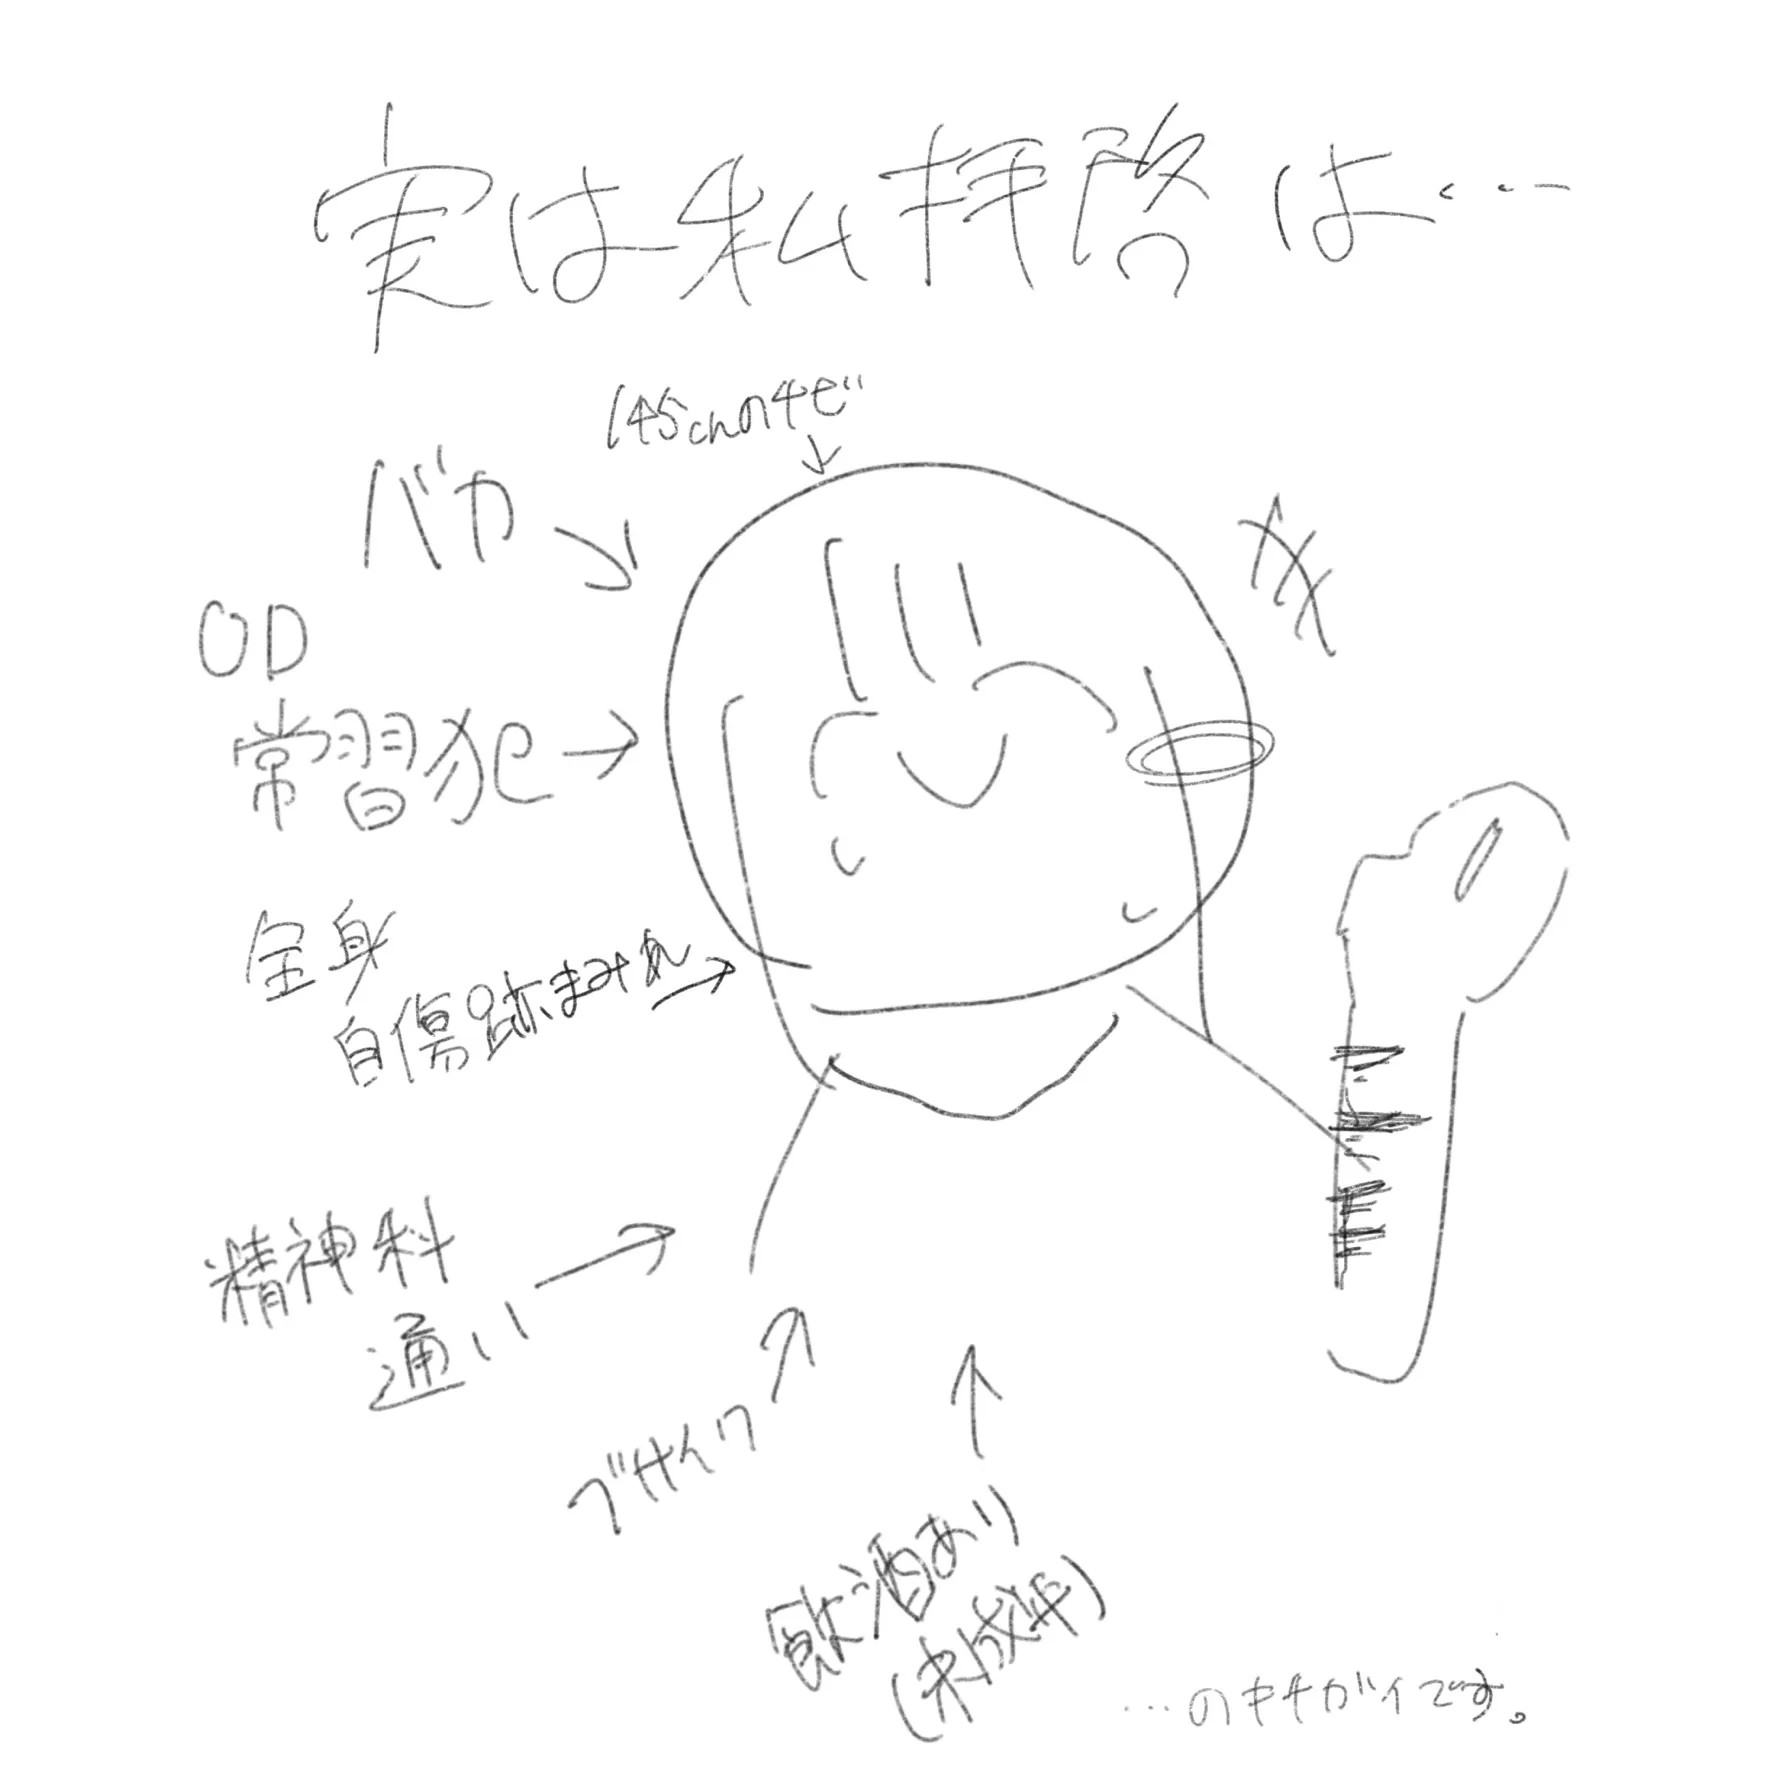 実は私拝啓は…
145cmのチビ
バカ
OD
常習犯
全身
自傷跡まみれ
精神科
通い
ブサイク
飲酒あり
(未成年)
…のキチガイです。